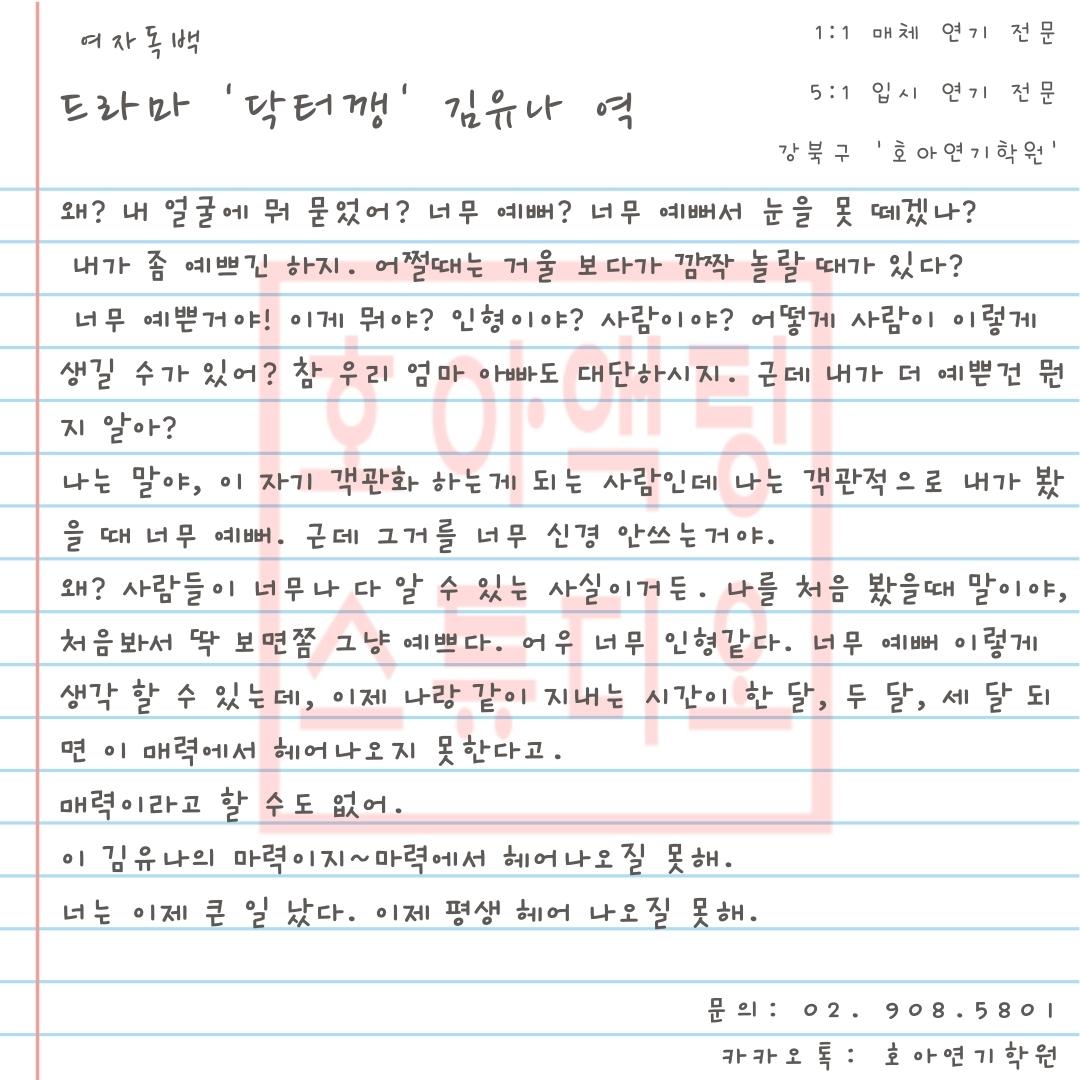 여자독백
드라마 '닥터깽' 김유나 역
1:1 매체 연기 전문
5:1 입시 연기 전문
강북구 '호아연기학원'
왜? 내 얼굴에 뭐 묻었어? 너무 예뻐? 너무 예뻐서 눈을 못 떼겠나?
내가 좀 예쁘긴 하지. 어쩔때는 거울 보다가 깜짝 놀랄 때가 있다?
너무 예쁜거야! 이게 뭐야? 인형이야? 사람이야? 어떻게 사람이 이렇게
생길 수가 있어? 참 우리 엄마 아빠도 대단하시지. 근데 내가 더 예쁜건 뭔
지 알아?
나는 말야, 이 자기 객관화 하는게 되는 사람인데 나는 객관적으로 내가 봤
을 때 너무 예뻐. 근데 그거를 너무 신경 안쓰는거야.
왜? 사람들이 너무나 다 알 수 있는 사실이거든. 나를 처음 봤을때 말이야,
처음봐서 딱 보면쫌 그냥 예쁘다. 어우 너무 인형같다. 너무 예뻐 이렇게
생각 할 수 있는데, 이제 나랑 같이 지내는 시간이 한 달, 두 달, 세 달 되
면 이 매력에서 헤어나오지 못한다고.
매력이라고 할 수도 없어.
이 김유나의 마력이지~마력에서 헤어나오질 못해.
너는 이제 큰 일 났다. 이제 평생 헤어 나오질 못해.
호아액팅
스튜디오
문의: 02. 908.5801
카카오톡: 호아연기학원